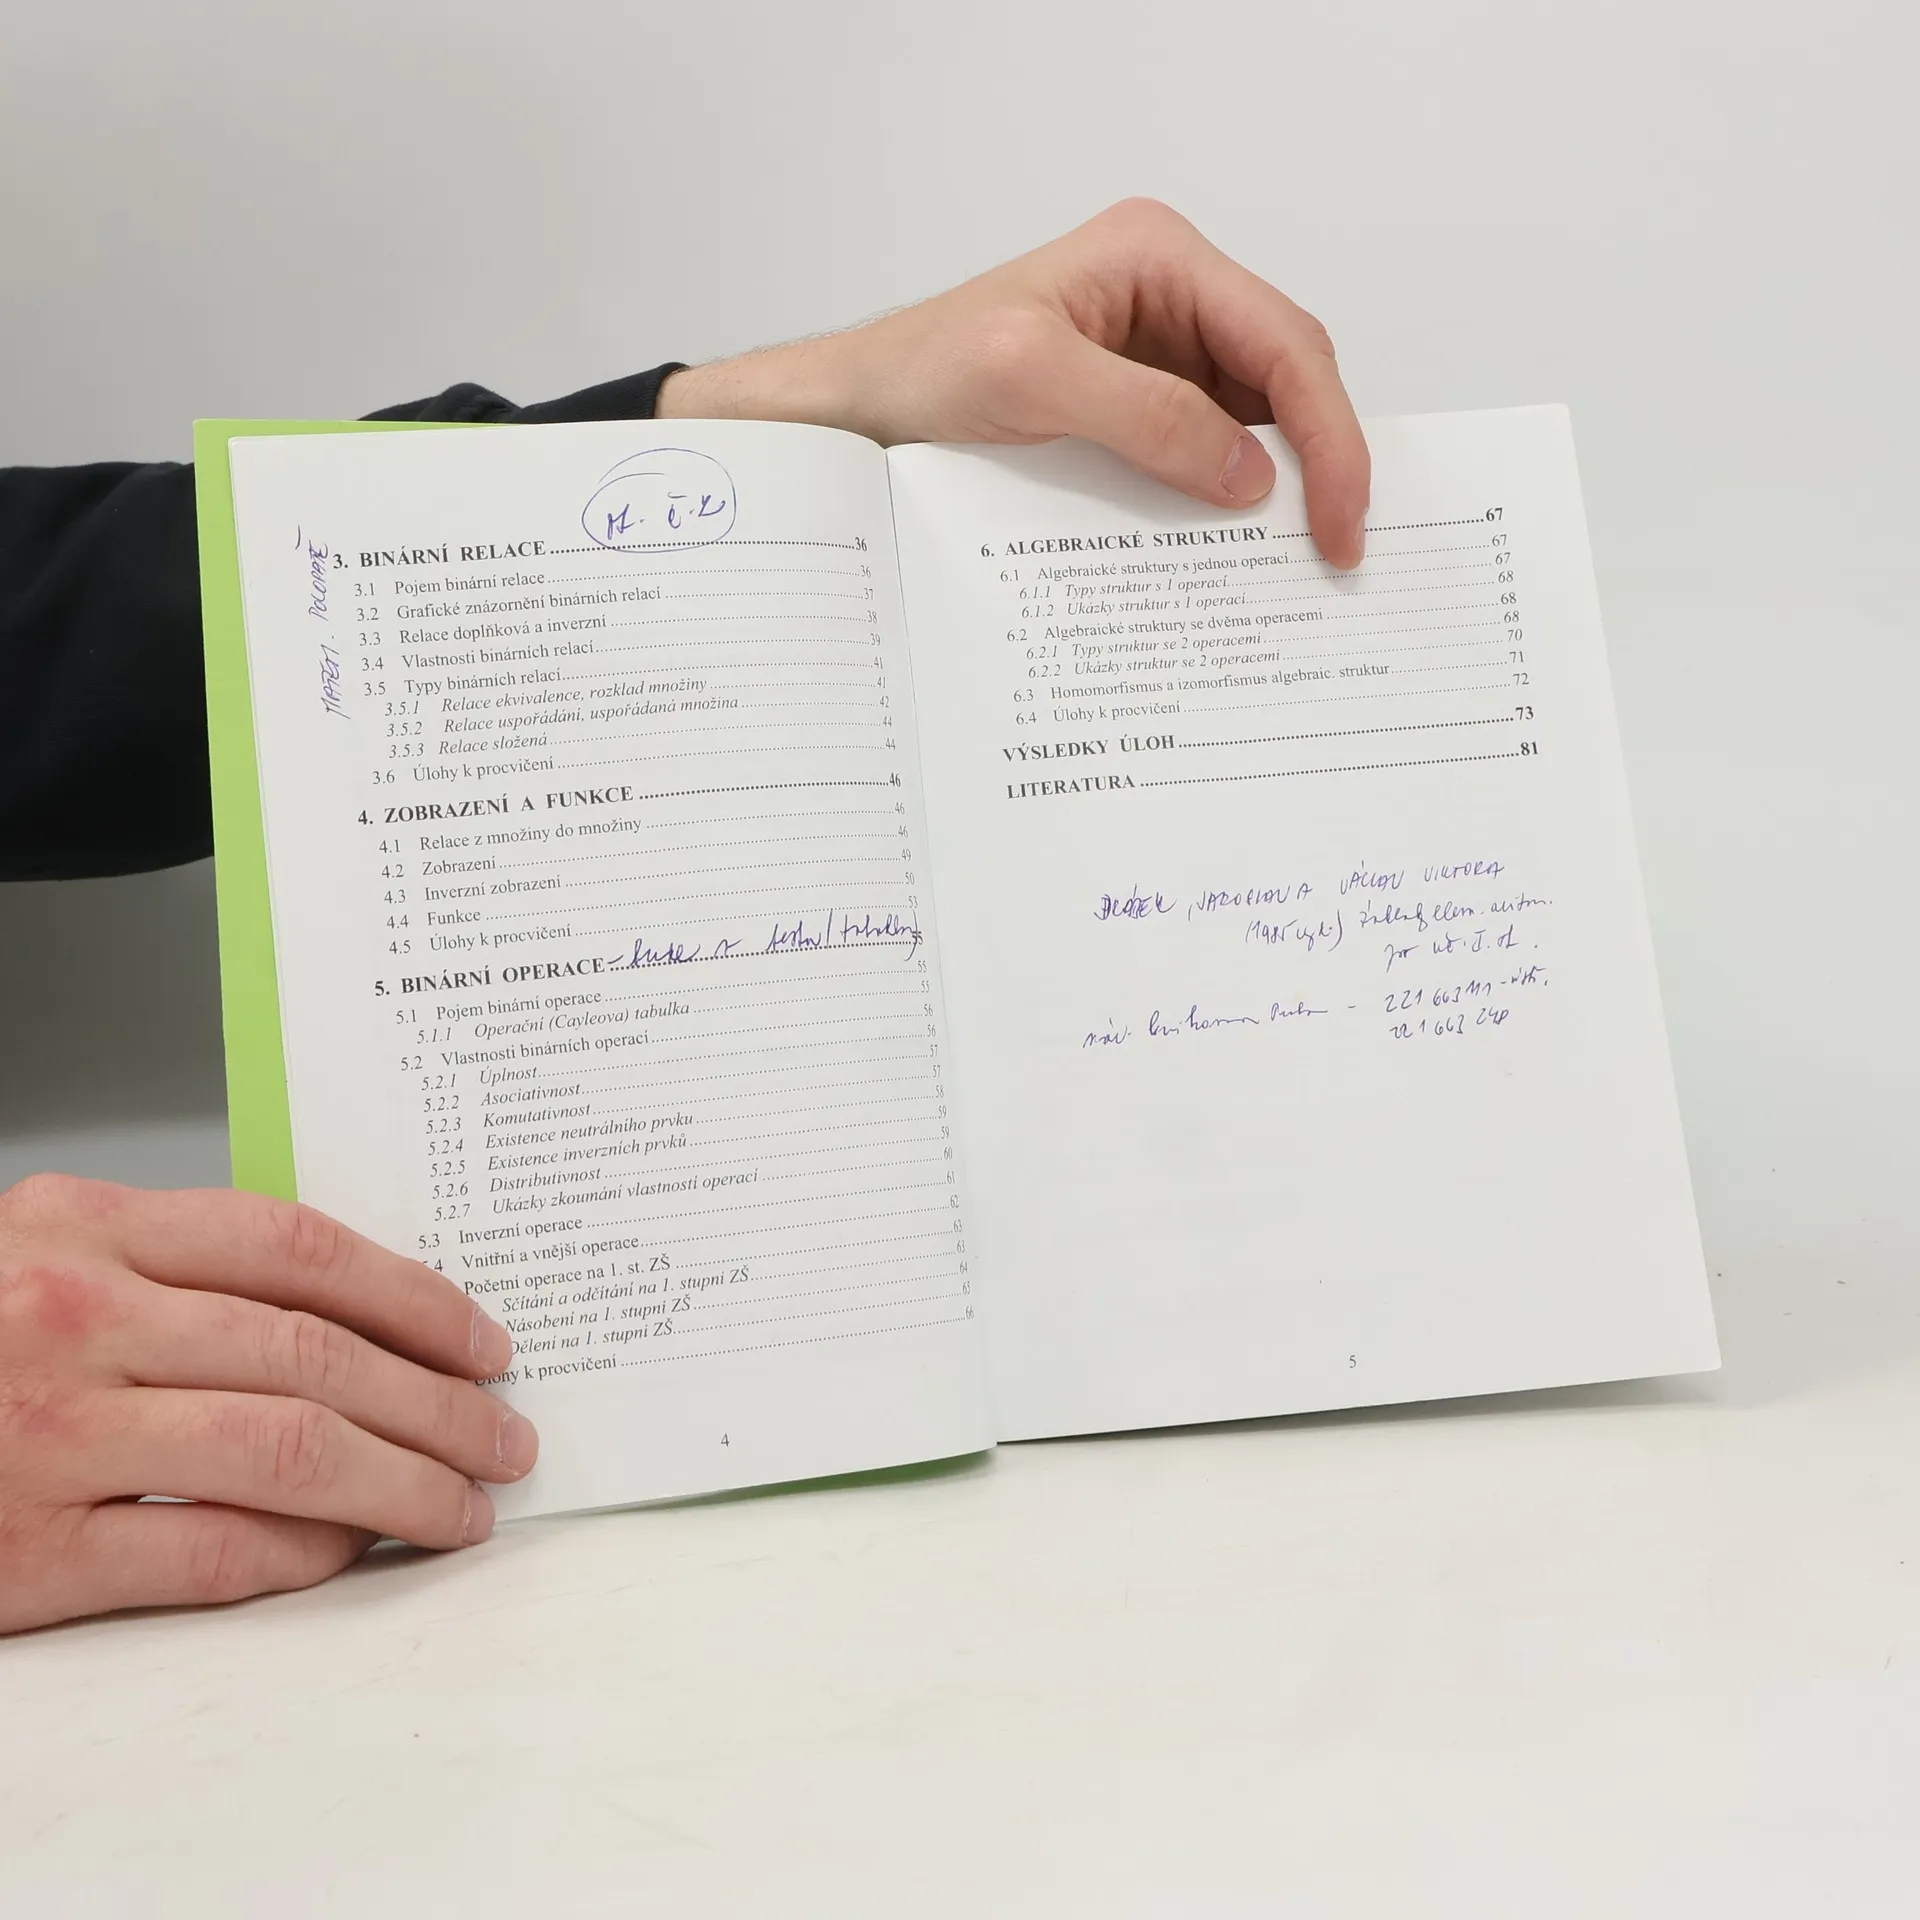 MATEM. POLOPATĚ
3. BINÁRNÍ RELACE 36
3.1 Pojem binární relace 36
3.2 Grafické znázornění binárních relací 37
3.3 Relace doplňková a inverzní 38
3.4 Vlastnosti binárních relací 39
3.5 Typy binárních relací 41
3.5.1 Relace ekvivalence, rozklad množiny 41
3.5.2 Relace uspořádání, uspořádaná množina 42
3.5.3 Relace složená 44
3.6 Úlohy k procvičení 44
4. ZOBRAZENÍ A FUNKCE 46
4.1 Relace z množiny do množiny 46
4.2 Zobrazení 46
4.3 Inverzní zobrazení 49
4.4 Funkce 50
4.5 Úlohy k procvičení 53
5. BINÁRNÍ OPERACE 55
5.1 Pojem binární operace 55
5.1.1 Operační (Cayleova) tabulka 55
5.2 Vlastnosti binárních operací 56
5.2.1 Úplnost 56
5.2.2 Asociativnost 57
5.2.3 Komutativnost 57
5.2.4 Existence neutrálního prvku 58
5.2.5 Existence inverzních prvků 59
5.2.6 Distributivnost 59
5.2.7 Ukázky zkoumání vlastností operací 60
5.3 Inverzní operace 61
4 Vnitřní a vnější operace 62
Početní operace na 1. st. ZŠ 63
Sčítání a odčítání na 1. stupni ZŠ 63
Násobení na 1. stupni ZŠ 64
Dělení na 1. stupni ZŠ 65
Úlohy k procvičení 66
4
6. ALGEBRAICKÉ STRUKTURY 67
6.1 Algebraické struktury s jednou operací 67
6.1.1 Typy struktur s 1 operací 67
6.1.2 Ukázky struktur s 1 operací 68
6.2 Algebraické struktury se dvěma operacemi 68
6.2.1 Typy struktur se 2 operacemi 68
6.2.2 Ukázky struktur se 2 operacemi 70
6.3 Homomorfismus a izomorfismus algebraic. struktur 71
6.4 Úlohy k procvičení 72
VÝSLEDKY ÚLOH 73
LITERATURA 81
JAROSLAV A VÁCLAV VIKTORA
(1985
221 663 111
221 663 248
5